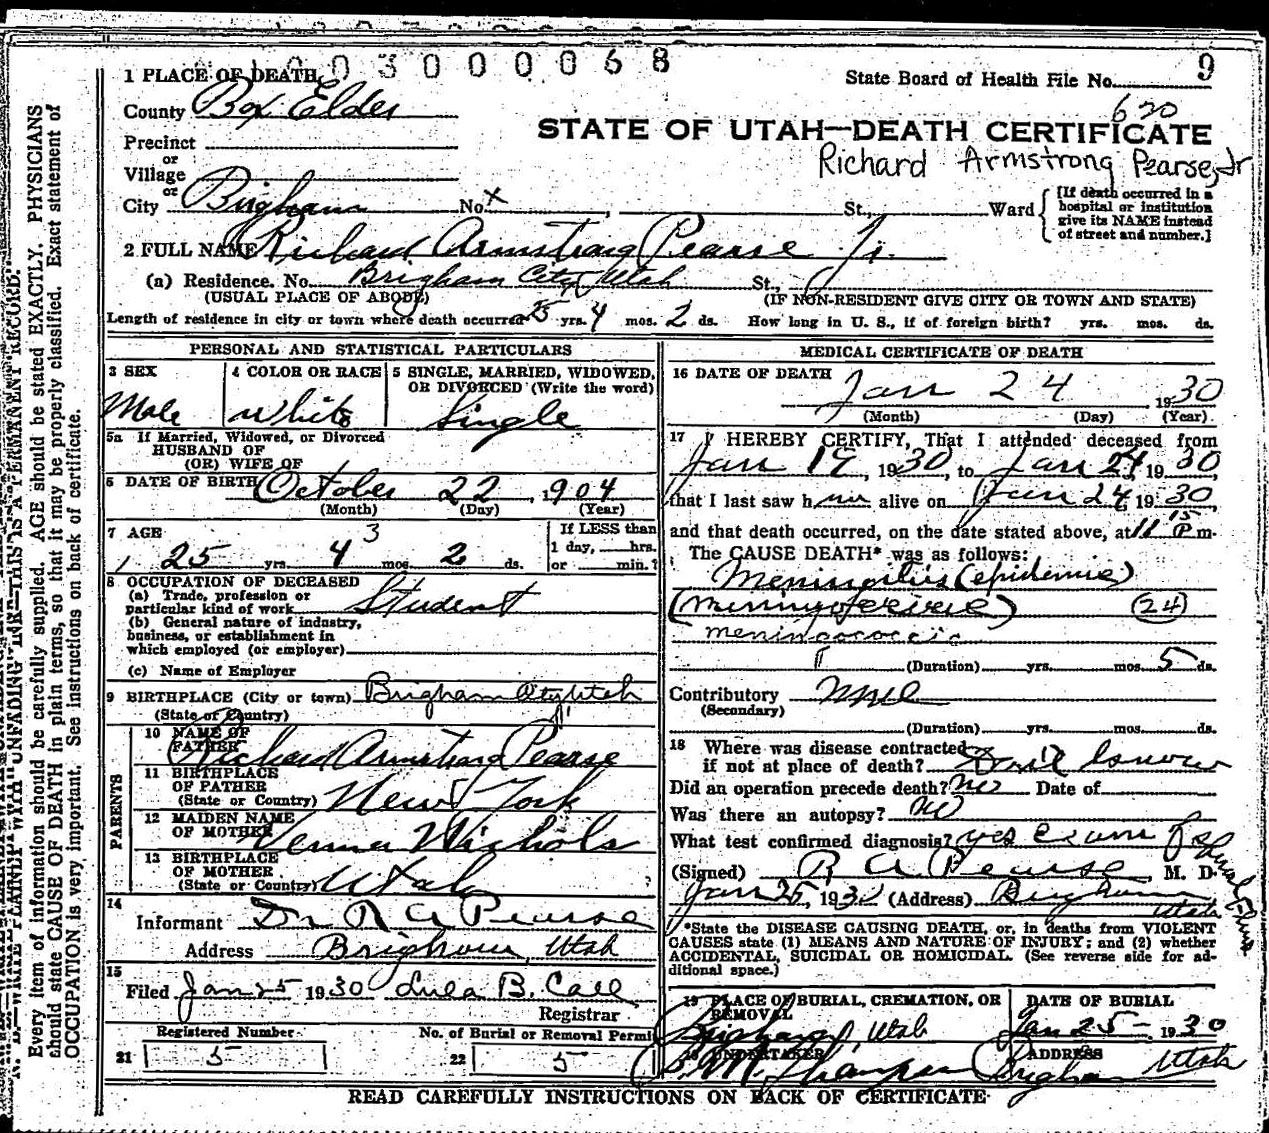 003000068
1 PLACE OF DEATH
State Board of Health File No. 9
County Box Elder
620
STATE OF UTAH—DEATH CERTIFICATE
Precinct
or
Village
Richard Armstrong Pearse, Jr
or
City Brigham No. x St., Ward
[If death occurred in a
hospital or institution
give its NAME instead
of street and number.]
2 FULL NAME Richard Armstrong Pearse Jr.
(a) Residence. No. Brigham City, Utah St.,
(USUAL PLACE OF ABODE) (IF NON-RESIDENT GIVE CITY OR TOWN AND STATE)
Length of residence in city or town where death occurred 25 yrs. 4 mos. 2 ds. How long in U. S., if of foreign birth? yrs. mos. ds.
PERSONAL AND STATISTICAL PARTICULARS
3 SEX
Male
4 COLOR OR RACE
White
5 SINGLE, MARRIED, WIDOWED,
OR DIVORCED (Write the word)
Single
5a If Married, Widowed, or Divorced
HUSBAND OF
(OR) WIFE OF
6 DATE OF BIRTH October 22, 1904
(Month) (Day) (Year)
7 AGE
25 yrs. 4 3 mos. 2 ds.
If LESS than
1 day, hrs.
or min.?
8 OCCUPATION OF DECEASED
(a) Trade, profession or
particular kind of work Student
(b) General nature of industry,
business, or establishment in
which employed (or employer)
(c) Name of Employer
9 BIRTHPLACE (City or town) Brigham City Utah
(State or Country)
PARENTS
10 NAME OF
FATHER Richard Armstrong Pearse
11 BIRTHPLACE
OF FATHER
(State or Country) New York
12 MAIDEN NAME
OF MOTHER Verna Nichols
13 BIRTHPLACE
OF MOTHER
(State or Country) Utah
14
Informant Dr R A Pearse
Address Brigham, Utah
15
Filed Jan 25 1930 Lula B. Call
Registrar
Registered Number
21 5
No. of Burial or Removal Permit
22 5
MEDICAL CERTIFICATE OF DEATH
16 DATE OF DEATH
Jan 24 1930
(Month) (Day) (Year)
17 I HEREBY CERTIFY, That I attended deceased from
Jan 19, 1930, to Jan 24, 1930,
that I last saw him alive on Jan 24 1930,
and that death occurred, on the date stated above, at 11 15 P m.
The CAUSE DEATH* was as follows:
Meningitis (epidemic)
(24)
meningococcic
(Duration) yrs. mos. 5 ds.
Contributory None
(Secondary)
(Duration) yrs. mos. ds.
18 Where was disease contracted
if not at place of death? Don't know
Did an operation precede death? no Date of
Was there an autopsy? no
What test confirmed diagnosis? yes exam of spinal fluid
(Signed) R A Pearse, M. D.
Jan 25, 1930 (Address) Brigham
Utah
*State the DISEASE CAUSING DEATH, or, in deaths from VIOLENT
CAUSES state (1) MEANS AND NATURE OF INJURY; and (2) whether
ACCIDENTAL, SUICIDAL OR HOMICIDAL. (See reverse side for ad-
ditional space.)
19 PLACE OF BURIAL, CREMATION, OR
REMOVAL
Brigham, Utah
DATE OF BURIAL
Jan 25 1930
20 UNDERTAKER
ADDRESS
Brigham Utah
READ CAREFULLY INSTRUCTIONS ON BACK OF CERTIFICATE
N. B.—WRITE PLAINLY WITH UNFADING INK—THIS IS A PERMANENT RECORD.
Every item of information should be carefully supplied. AGE should be stated EXACTLY. PHYSICIANS
should state CAUSE OF DEATH in plain terms, so that it may be properly classified. Exact statement of
OCCUPATION is very important. See instructions on back of certificate.